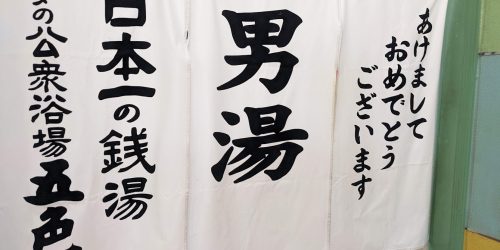 あけまして
おめでとう
ございます
男湯
日本一の銭湯
の公衆浴場五色